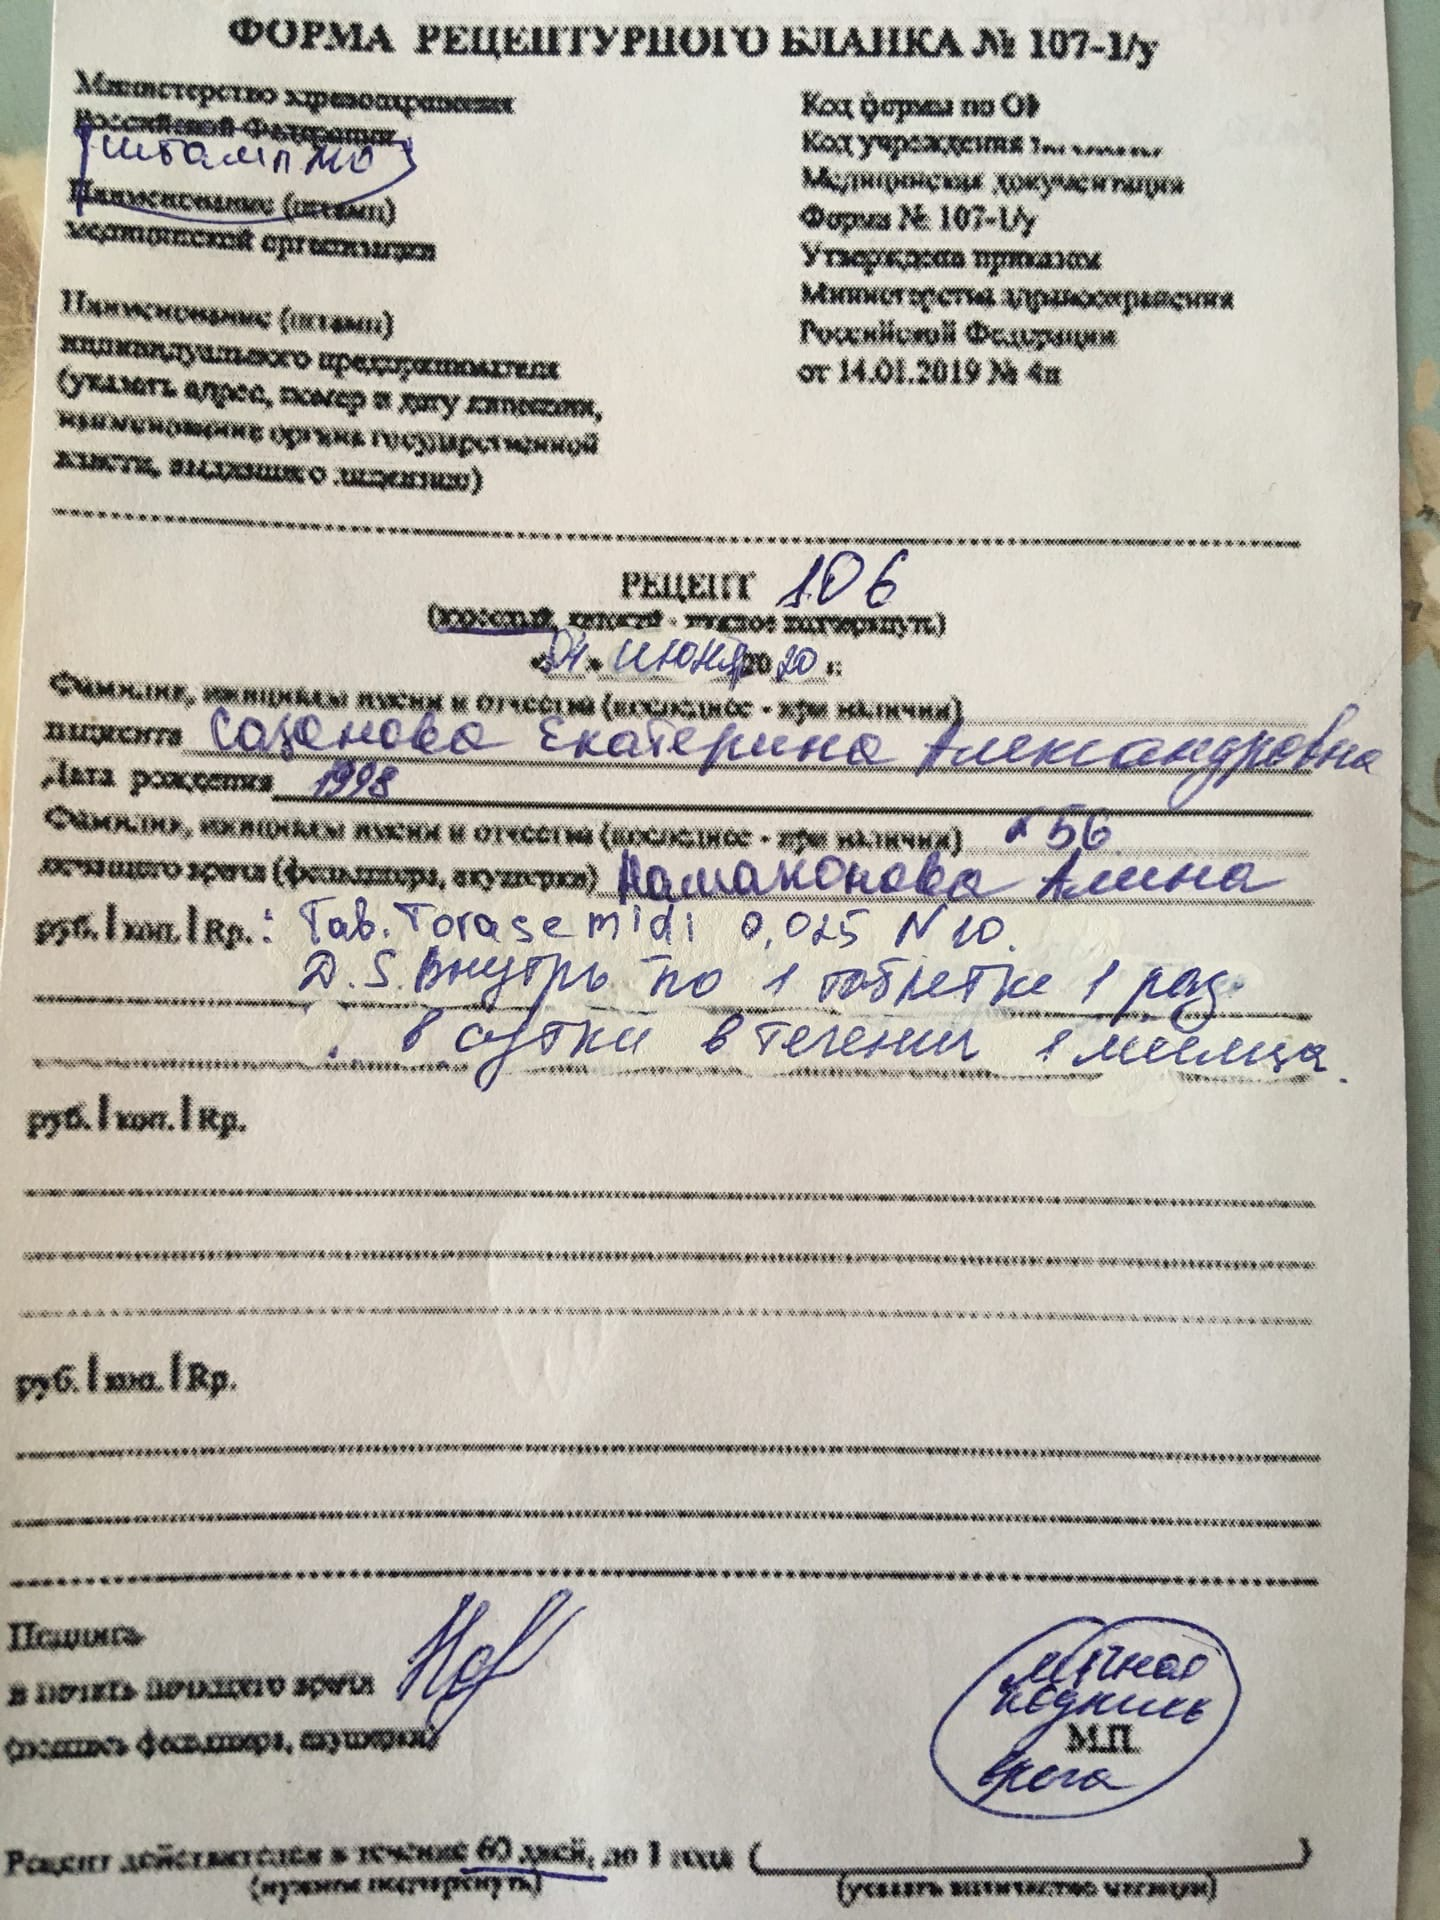 ФОРМА РЕЦЕПТУРНОГО БЛАНКА № 107-1/у
Министерство здравоохранения
Российской Федерации
штамп МО
Наименование (штамп)
медицинской организации
Наименование (штамп)
индивидуального предпринимателя
(указать адрес, номер и дату лицензии,
наименование органа государственной
власти, выдавшего лицензию)
Код формы по
Код учреждения
Медицинская документация
Форма № 107-1/у
Утверждена приказом
Министерства здравоохранения
Российской Федерации
от 14.01.2019 № 4н
РЕЦЕПТ 106
(взрослый, детский - нужное подчеркнуть)
«04» июня 2020 г.
Фамилия, инициалы имени и отчества (последнее - при наличии)
пациента Сазонова Екатерина Александровна
Дата рождения 1998
Фамилия, инициалы имени и отчества (последнее - при наличии) 56
лечащего врача (фельдшера, акушерки) Намаконова Алина
руб. | коп. | Rp.: Tab. Torasemidi 0,025 N 10.
D.S. Внутрь по 1 таблетке 1 раз
в сутки в течении 1 месяца.
руб. | коп. | Rp.
руб. | коп. | Rp.
Подпись
и печать лечащего врача
(подпись фельдшера, акушерки)
личная
подпись
М.П.
врача
Рецепт действителен в течение 60 дней, до 1 года (
)
(нужное подчеркнуть)
(указать количество месяцев)